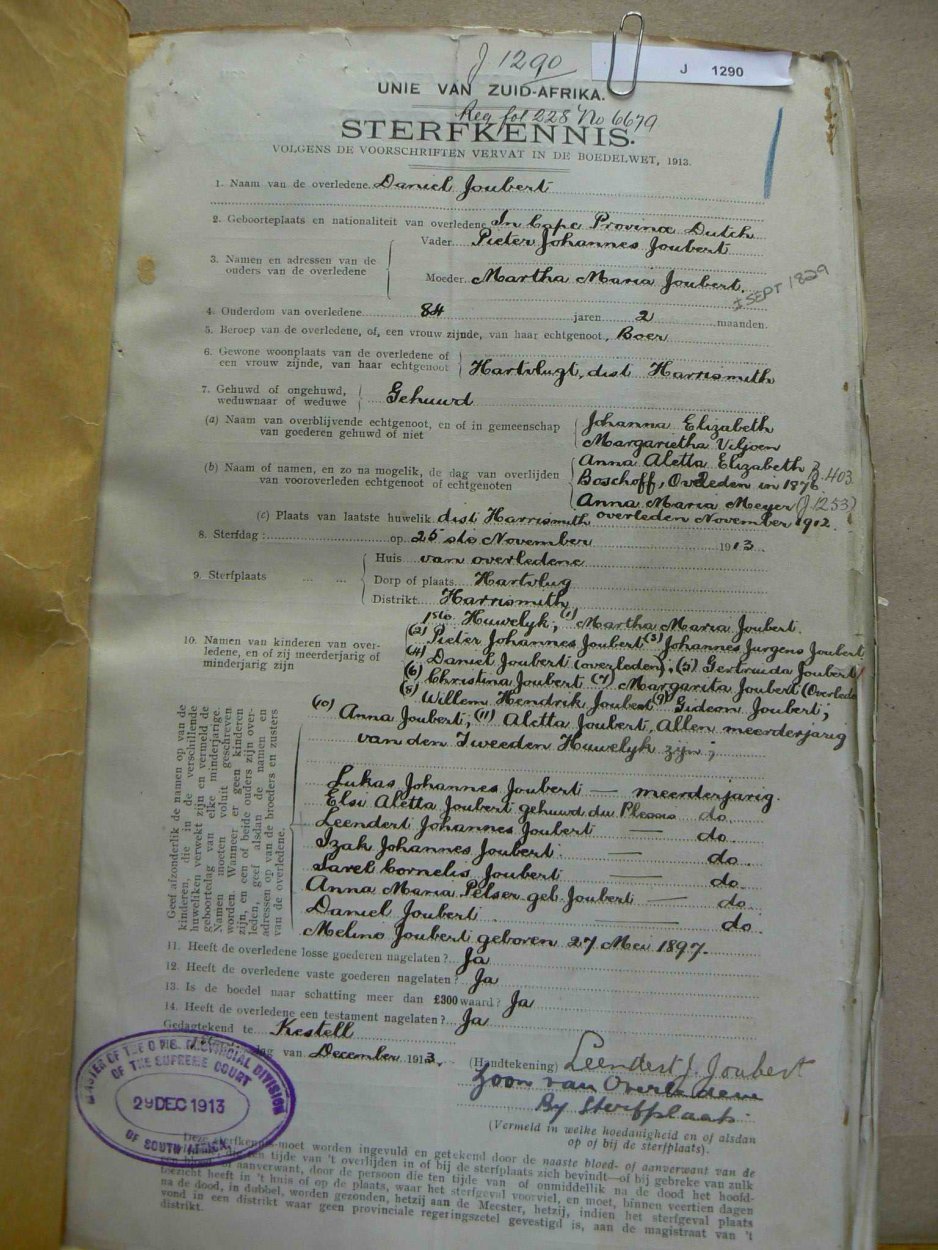 J 1290
J 1290
UNIE VAN ZUID-AFRIKA.
Reg fol 228 No 6679
STERFKENNIS.
VOLGENS DE VOORSCHRIFTEN VERVAT IN DE BOEDELWET, 1913.
1. Naam van de overledene Daniel Joubert
2. Geboorteplaats en nationaliteit van overledene In Cape Province Dutch
3. Namen en adressen van de ouders van de overledene
Vader Pieter Johannes Joubert
Moeder Martha Maria Joubert.
± SEPT 1829
4. Ouderdom van overledene 84 jaren 2 maanden.
5. Beroep van de overledene, of, een vrouw zijnde, van haar echtgenoot, Boer
6. Gewone woonplaats van de overledene of
een vrouw zijnde, van haar echtgenoot Hartvlugt, dist Harrismith
7. Gehuwd of ongehuwd,
weduwnaar of weduwe Gehuurd
(a) Naam van overblijvende echtgenoot, en of in gemeenschap
van goederen gehuwd of niet
Johanna Elizabeth
Margarietha Viljoen
(b) Naam of namen, en zo na mogelik, de dag van overlijden
van vooroverleden echtgenoot of echtgenoten
Anna Aletta Elizabeth
Boschoff, Overleden in 1876 J.403
Anna Maria Meyer (J.1253)
overleden November 1912.
(c) Plaats van laatste huwelik dist Harrismith
8. Sterfdag: op 25 ste November 1913
9. Sterfplaats
Huis van overledene
Dorp of plaats Hartvlug
Distrikt Harrismith
10. Namen van kinderen van over-
ledene, en of zij meerderjarig of
minderjarig zijn
1ste Huwelyk; (1) Martha Maria Joubert.
(2) Pieter Johannes Joubert (3) Johannes Jurgens Joubert
(4) Daniel Joubert (overleden); (5) Gertruida Joubert
(6) Christina Joubert (7) Margarita Joubert (Overlede
(8) Willem Hendrik Joubert (9) Gideon Joubert;
(10) Anna Joubert; (11) Aletta Joubert, Allen meerderjarig
van den Tweeden Huwelyk zyn;
Geef afzonderlik de namen op van de
kinderen, die in de verschillende
huweliken verwekt zijn en vermeld de
geboortedag van elke minderjarige.
Namen moeten voluit geschreven
worden. Wanneer er geen kinderen
zijn, en een of beide ouders zijn over-
leden, geef alsdan de namen en
adressen op van de broeders en zusters
van de overledene.
Lukas Johannes Joubert — meerderjarig.
Elsi Aletta Joubert gehuwd du Plessis do.
Leendert Johannes Joubert — do.
Izak Johannes Joubert. — do.
Sarel Cornelis Joubert — do.
Anna Maria Pelser geb. Joubert — do.
Daniel Joubert do.
Melino Joubert geboren 27 Mei 1897.
11. Heeft de overledene losse goederen nagelaten? Ja
12. Heeft de overledene vaste goederen nagelaten? Ja
13. Is de boedel naar schatting meer dan £300 waard? Ja
14. Heeft de overledene een testament nagelaten? Ja
Gedagtekend te Kestell
dag van December 1913.
(Handtekening) Leendert J. Joubert
Zoon van Overledene
By Sterfplaats
(Vermeld in welke hoedanigheid en of alsdan
op of bij de sterfplaats).
MASTER OF THE O.F.S. PROVINCIAL DIVISION
OF THE SUPREME COURT
29 DEC 1913
OF SOUTH AFRICA.
Deze sterfkennis moet worden ingevuld en getekend door de naaste bloed- of aanverwant van de
die ten tijde van 't overlijden in of bij de sterfplaats zich bevindt—of bij gebreke van zulk
bloed- of aanverwant, door de persoon die ten tijde van of onmiddellik na de dood het hoofd-
toezicht heeft in 't huis of op de plaats, waar het sterfgeval voorviel, en moet, binnen veertien dagen
na de dood, in dubbel, worden gezonden, hetzij aan de Meester, hetzij, indien het sterfgeval plaats
vond in een distrikt waar geen provinciale regeringszetel gevestigd is, aan de magistraat van 't
distrikt.